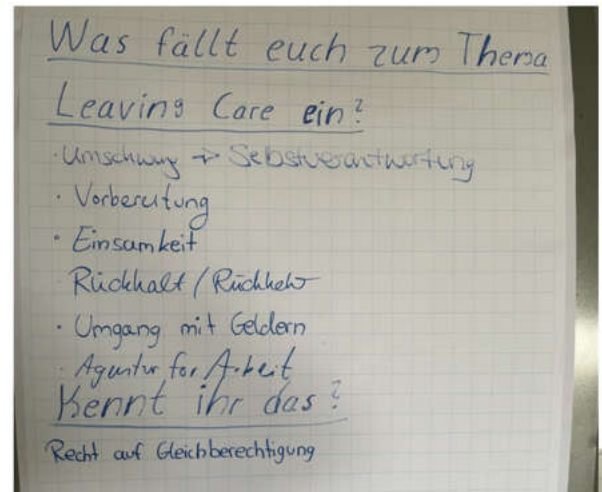 Was fällt euch zum Thema
Leaving Care ein?
· Umschwung → Selbstverantwortung
· Vorbereitung
· Einsamkeit
Rückhalt / Rückkehr
· Umgang mit Geldern
· Agentur for Arbeit
Kennt ihr das?
Recht auf Gleichberechtigung